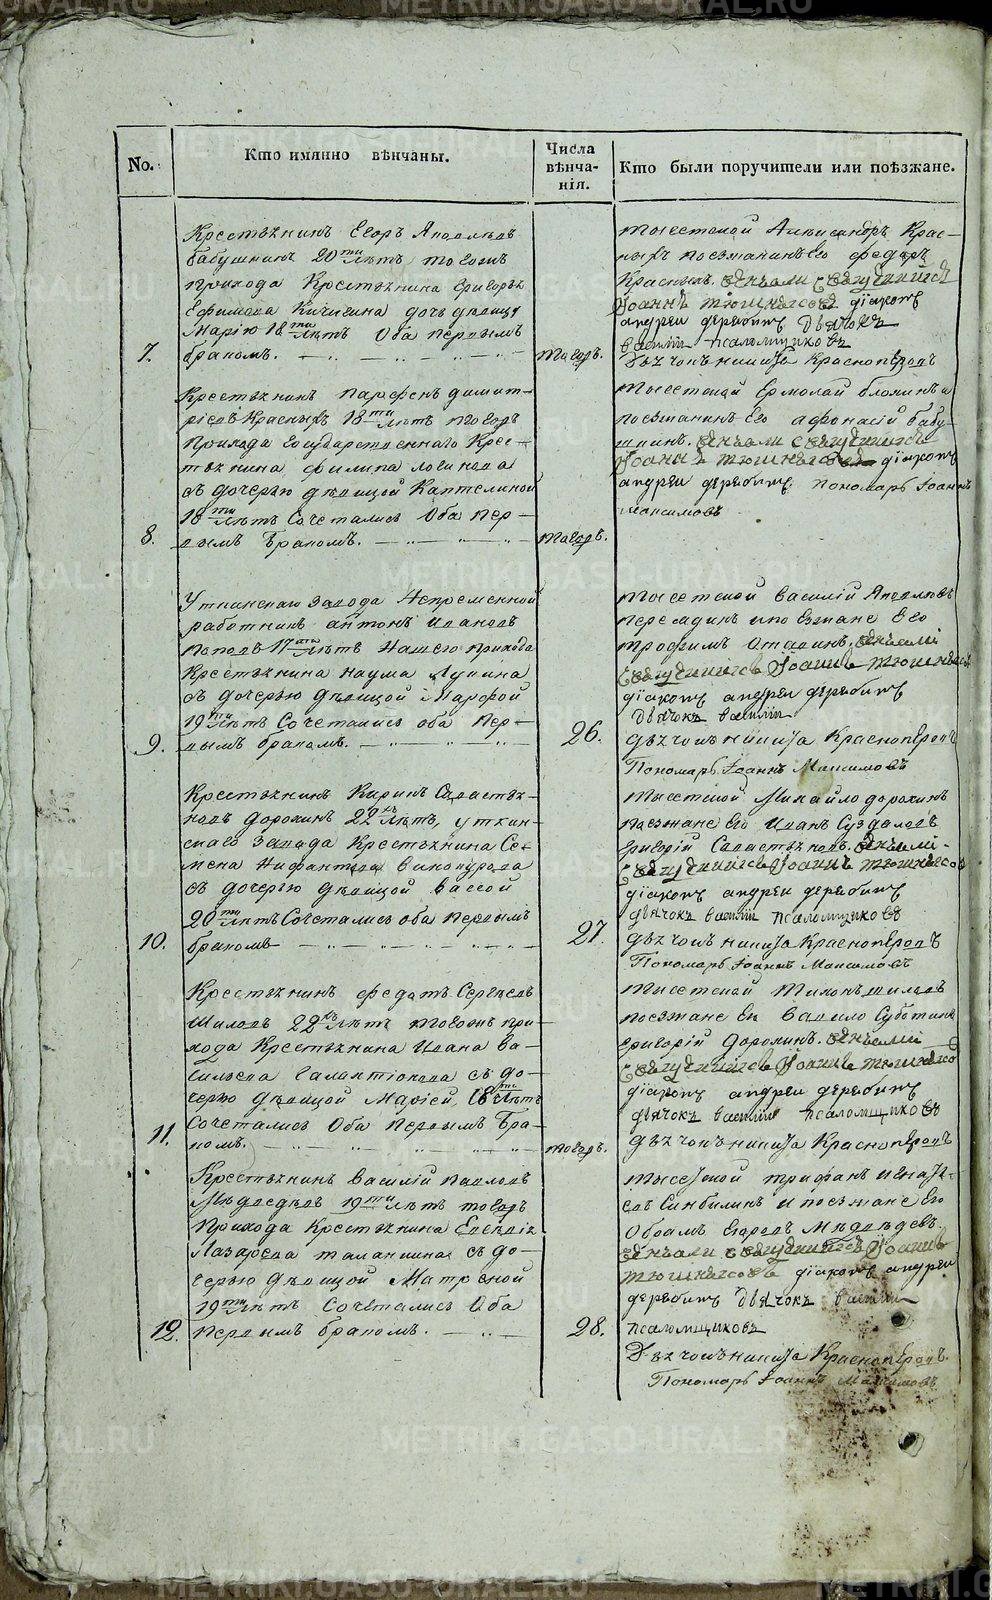 METRIKI.GASO-URAL.RU
No.
Кто имянно вѣнчаны.
Числа
вѣнча-
нія.
Кто были поручители или поѣзжане.
Крестьянинъ Егоръ Яковлевъ
бабушкинъ 20ти лѣтъ тогожъ
прихода Крестьянина Григорья
Ефимова Кичигина дочь дѣвицу
Марію 18ти лѣтъ Оба первымъ
7.
бракомъ.
тогоръ.
тысетской Александръ Крас-
ныхъ поезжанинъ Его федоръ
Красныхъ. вѣнчали священникъ
Іоаннъ діаконъ
андреи дерябинъ Дьячокъ
василіи псаломщиковъ
никита Красноперовъ
Крестьянинъ парфенъ димит-
ріевъ Красныхъ 18ти лѣтъ тогожъ
прихода государственнаго Крес-
тьянина филипа логинова
съ дочерью дѣвицой Каптелиной
18ти лѣтъ Сочетались Оба пер-
8.
вымъ бракомъ.
тогоръ.
тысетской Ермолай блохинъ и
поезжанинъ Его афонасій бабу-
шкинъ. вѣнчали священникъ
Іоаннъ діаконъ
андреи дерябинъ пономарь Іоаннъ
максимовъ
Уткинскаго завода Непременной
работникъ антонъ Ивановъ
поповъ 17ти лѣтъ Нашего прихода
Крестьянина наума Лупина
съ дочерью дѣвицой Марфой
19ти лѣтъ Сочетались оба пер-
9.
вымъ бракомъ.
26.
тысетской василій Яковлевъ
Его
трофимъ вѣнчали
священникъ Іоаннъ
діаконъ андреи дерябинъ
Дьячокъ василіи
никита Красноперовъ
Пономарь Іоаннъ Максимовъ
Крестьянинъ Киринъ Савастья-
новъ дорохинъ 22хъ лѣтъ, уткин-
скаго завода Крестьянина Се-
мена винокурова
съ дочерью дѣвицой вассой
20ти лѣтъ Сочетались оба первымъ
10.
бракомъ
27.
тысетской Михайло дорохинъ
поезжане Его Иванъ Суздаловъ
григорій Савастьяновъ. вѣнчали
священникъ Іоаннъ
діаконъ андреи дерябинъ
дьячокъ василіи псаломщиковъ
никита Красноперовъ
Пономарь Іоаннъ Максимовъ
Крестьянинъ федотъ Сергѣевъ
Шиловъ 22хъ лѣтъ тогожъ при-
хода Крестьянина Ивана ва-
сильева галактіонова съ до-
черью дѣвицой Маріей 18ти лѣтъ
Сочетались Оба Первымъ Бра-
11.
комъ.
тогоръ.
тысетской Тихонъ шиловъ
поезжане Его вавило Суботинъ
григорій дорохинъ. вѣнчали
священникъ Іоаннъ
діаконъ андреи дерябинъ
дьячокъ василіи псаломщиковъ
никита Красноперовъ
Крестьянинъ василій павловъ
Медведевъ 19ти лѣтъ тогожъ
прихода Крестьянина
Лазарева таланкина съ до-
черью дѣвицой Матреной
19ти лѣтъ Сочетались Оба
12.
первымъ бракомъ.
28.
тысетской трифанъ игнать-
евъ и поезжане Его
Обрамъ Егоровъ Медведевъ.
вѣнчали священникъ Іоаннъ
діаконъ андреи
дерябинъ Дьячокъ василіи
псаломщиковъ
никита Красноперовъ
Пономарь Іоаннъ Максимовъ